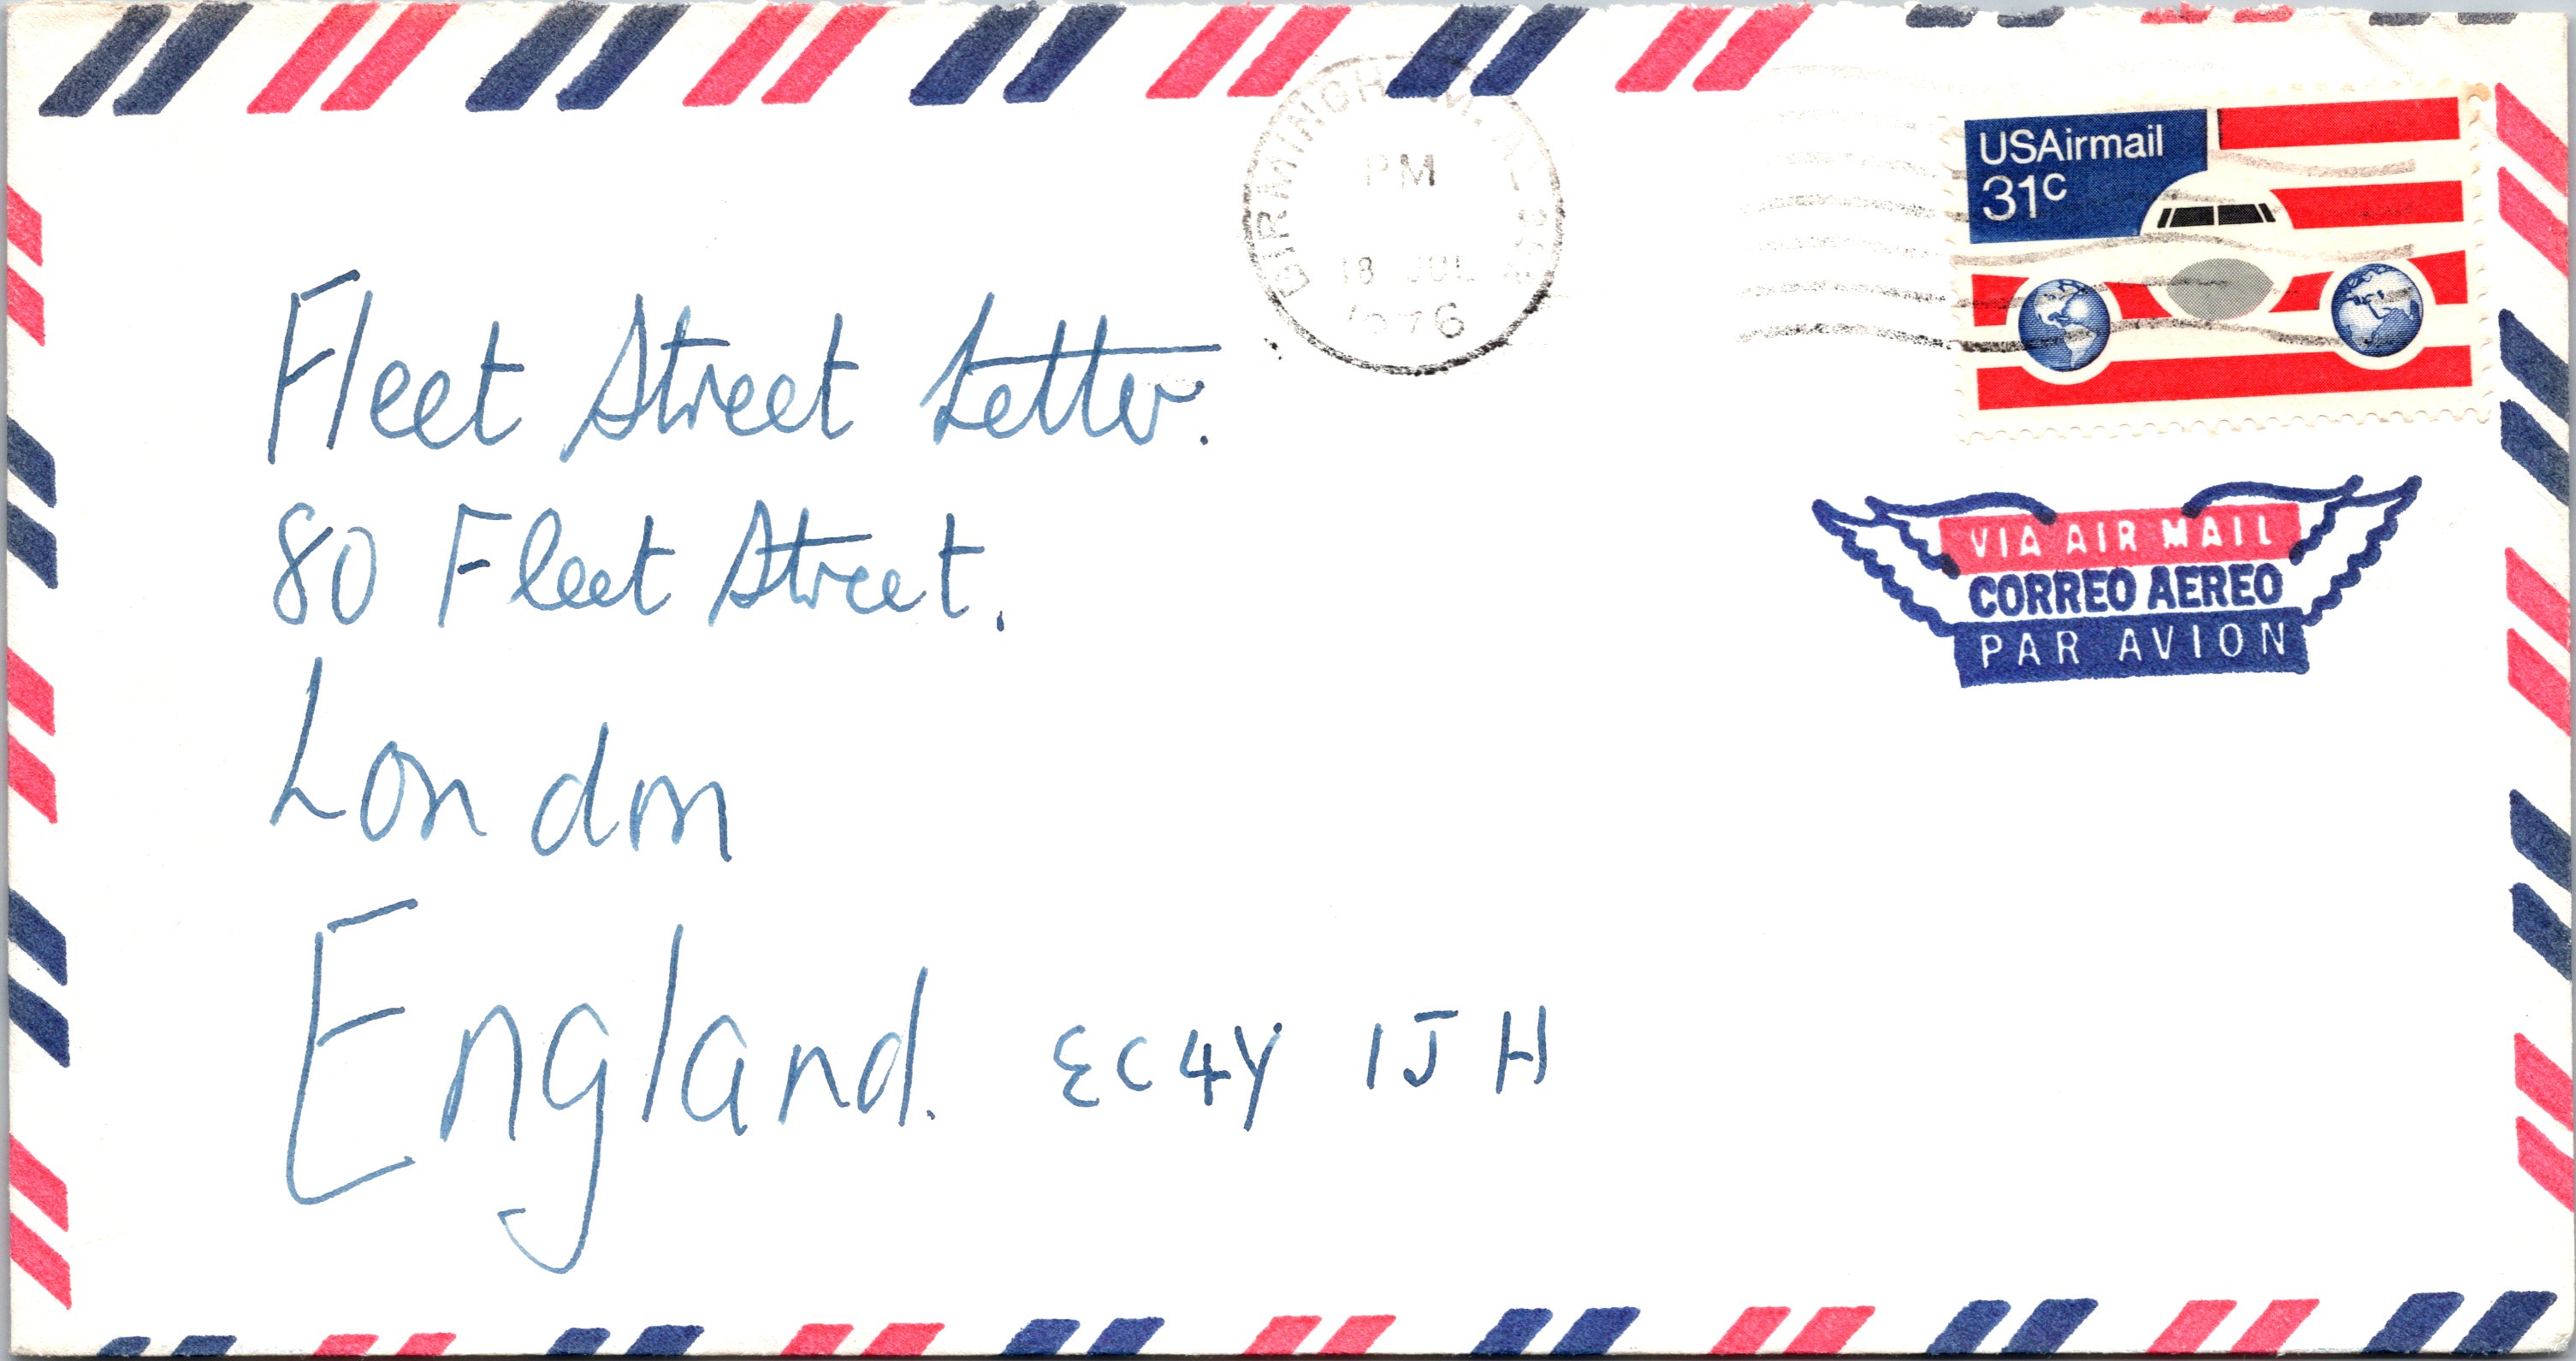 BIRMINGHAM, AL
PM
18 JUL
1976
USAirmail
31c
Fleet Street Letter.
80 Fleet Street.
London
England. EC4Y 1JH
VIA AIR MAIL
CORREO AEREO
PAR AVION